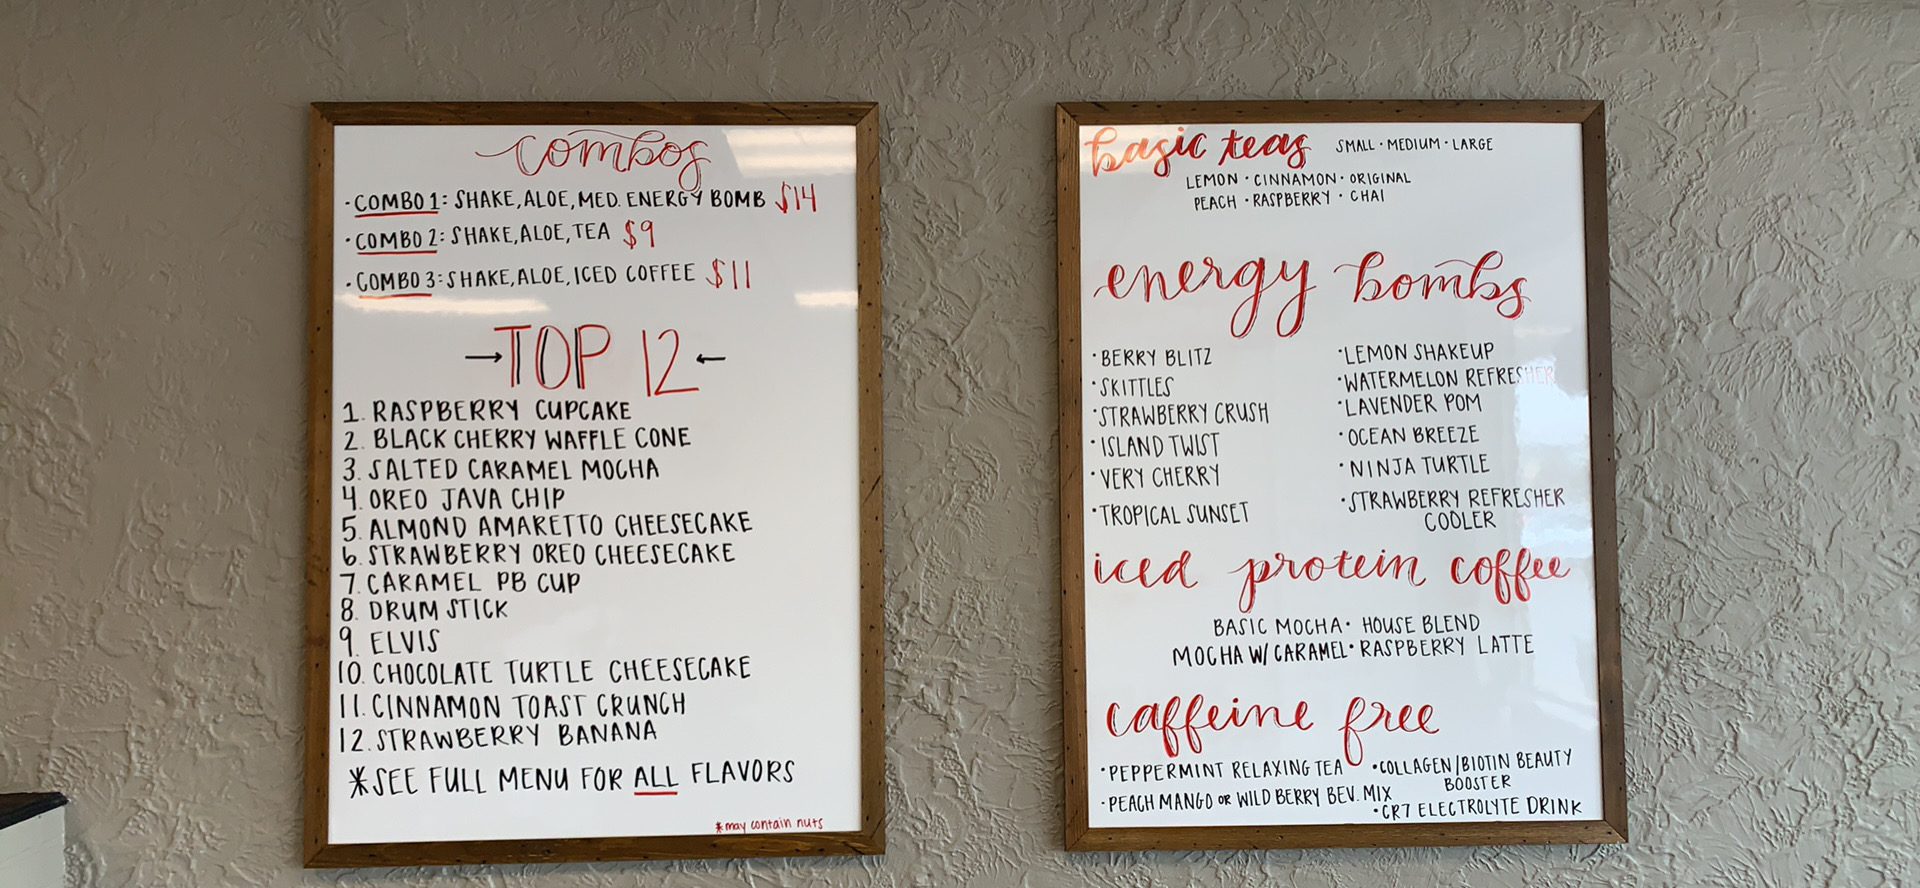 combos
· COMBO 1: SHAKE, ALOE, MED. ENERGY BOMB $14
· COMBO 2: SHAKE, ALOE, TEA $9
· COMBO 3: SHAKE, ALOE, ICED COFFEE $11
→ TOP 12 ←
1. RASPBERRY CUPCAKE
2. BLACK CHERRY WAFFLE CONE
3. SALTED CARAMEL MOCHA
4. OREO JAVA CHIP
5. ALMOND AMARETTO CHEESECAKE
6. STRAWBERRY OREO CHEESECAKE
7. CARAMEL PB CUP
8. DRUM STICK
9. ELVIS
10. CHOCOLATE TURTLE CHEESECAKE
11. CINNAMON TOAST CRUNCH
12. STRAWBERRY BANANA
*SEE FULL MENU FOR ALL FLAVORS
*may contain nuts
basic teas SMALL · MEDIUM · LARGE
LEMON · CINNAMON · ORIGINAL
PEACH · RASPBERRY · CHAI
energy bombs
· BERRY BLITZ
· SKITTLES
· STRAWBERRY CRUSH
· ISLAND TWIST
· VERY CHERRY
· TROPICAL SUNSET
· LEMON SHAKEUP
· WATERMELON REFRESHER
· LAVENDER POM
· OCEAN BREEZE
· NINJA TURTLE
· STRAWBERRY REFRESHER
COOLER
iced protein coffee
BASIC MOCHA · HOUSE BLEND
MOCHA W/ CARAMEL · RASPBERRY LATTE
caffeine free
· PEPPERMINT RELAXING TEA
· PEACH MANGO OR WILD BERRY BEV. MIX
· COLLAGEN/BIOTIN BEAUTY
BOOSTER
· CR7 ELECTROLYTE DRINK